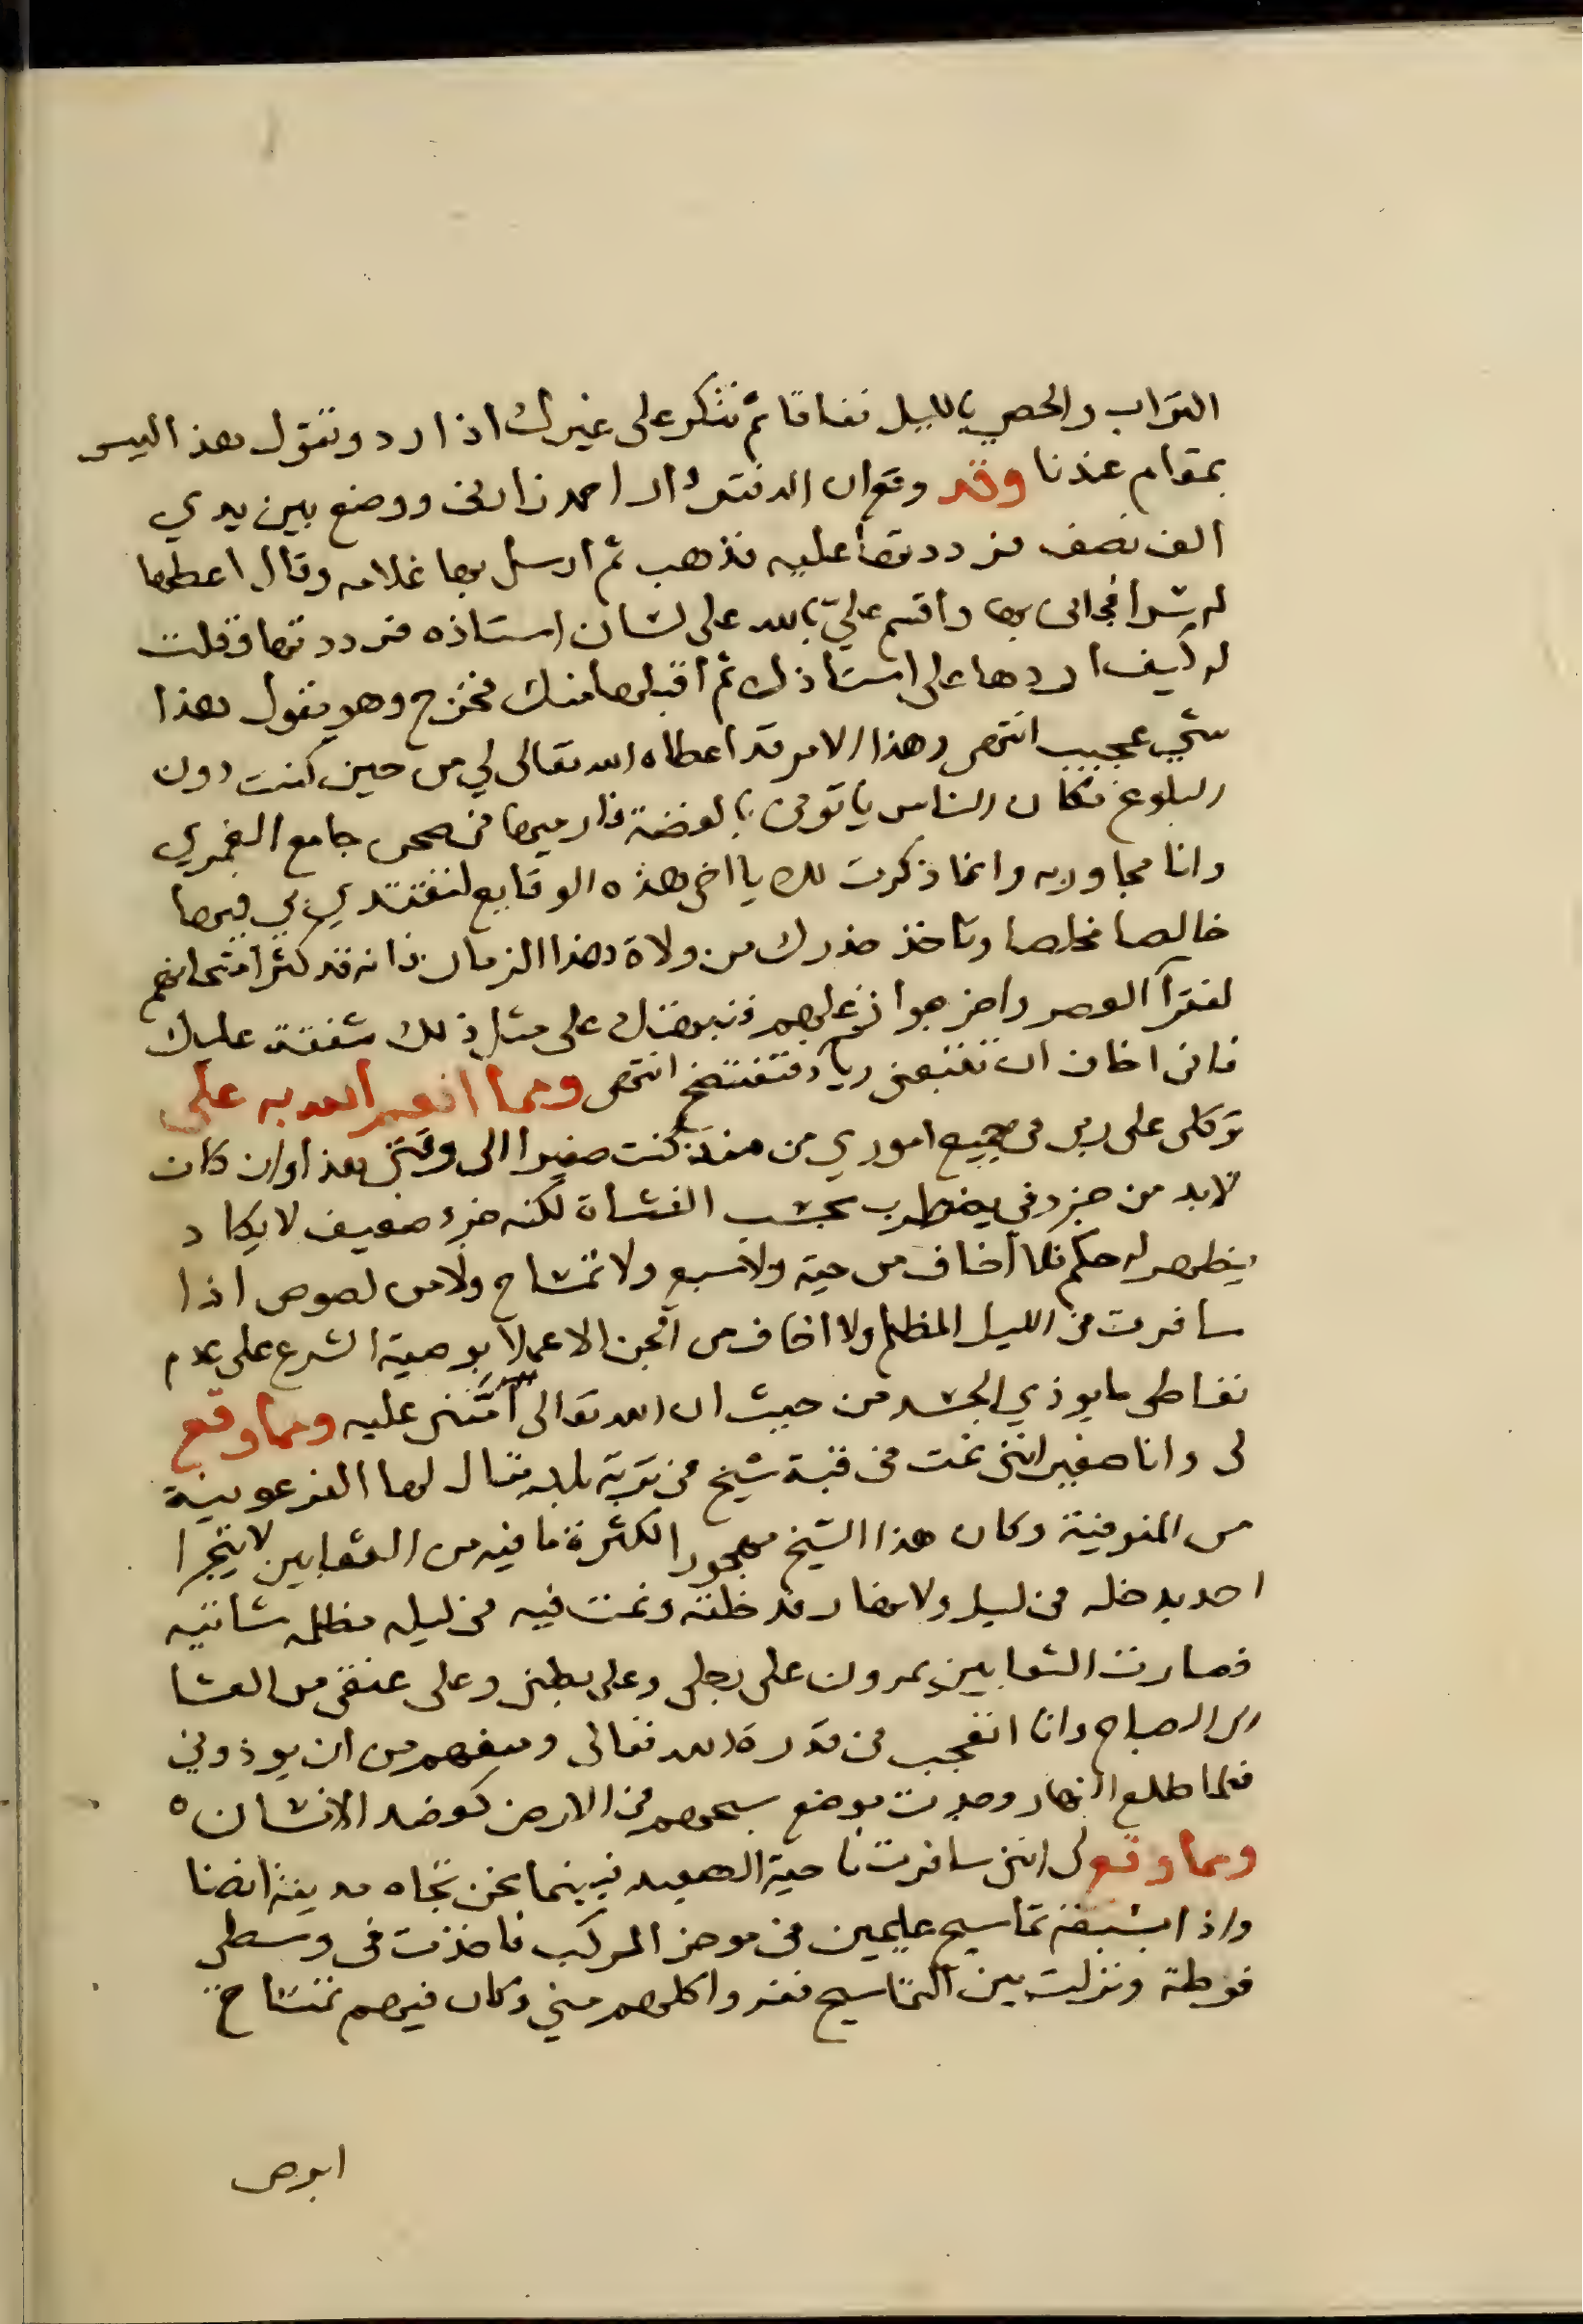 التراب والحصى بالليل نفاقا ثم تنكر على غيرك اذا رد وتقول هذا ليس
بمقام عندنا وقد وقع ان الدفتردار احمد زارنى ووضع بين يدي
الف نصف فرددتها عليه فذهب ثم ارسل بها غلامه وقال اعطها
له سرا فجانى بها واقسم عليّ بالله على لسان استاذه فرددتها وقلت
له كيف اردها على استاذك ثم اقبلها منك فخرج وهو يقول هذا
شي عجيب انتهى وهذا الامر قد اعطاه الله تعالى لي من حين كنت دون
البلوغ فكان الناس ياتونى بالفضة فارميها فى صحن جامع الغمري
وانا مجاور به وانما ذكرت لك يا اخى هذه الوقايع لتقتدي بي فيها
خالصا مخلصا وتاخذ حذرك من ولاة هذا الزمان فانه قد كثر امتحانهم
لفقرآ العصر واخرجوا زغلهم فنبهتك على مثل ذلك شفقة عليك
فانى اخاف ان تتبعنى ريآ فتفتضح انتهى ومما انعم الله به على
توكلى على ربى فى جميع اموري من منذ كنت صغيرا الى وقتى هذا وان كان
لا بد من جزء فيّ يضطرب بحسب النشاة لكنه جزء ضعيف لا يكاد
يظهر له حكم فلا أخاف من حية ولا سبع ولا تمساح ولا من لصوص اذا
سافرت فى الليل المظلم ولا اخاف من الجن الا عملا بوصية الشرع على عدم
تعاطى ما يوذي الجسد من حيث ان الله تعالى امتننى عليه ومما وقع
لى وانا صغير اننى نمت فى قبة شيخ فى تربة بلد يقال لها الفرعونية
من المنوفية وكان هذا الشيخ مهجورا لكثرة ما فيه من الثعابين لا يتجرا
احد يدخله فى ليل ولا نهار فدخلته ونمت فيه فى ليله مظلمه شاتيه
فصارت الثعابين يمرون على رجلى وعلى بطنى وعلى عنقى من العشا
الى الصباح وانا اتعجب فى قدرة الله تعالى ومنعهم من ان يوذوني
فلما طلع النهار وجدت موضع سحبهم فى الارض كوضد الانسان ه
ومما وقع لى اننى سافرت ناحية الصعيد فبينما نحن تجاه مدينة انصنا
واذا بسبعة تماسيح عليمين فى موخر المركب فاخذت فى وسطى
فوطة ونزلت بين التماسيح ففروا كلهم منى وكان فيهم تمساح
ابرص